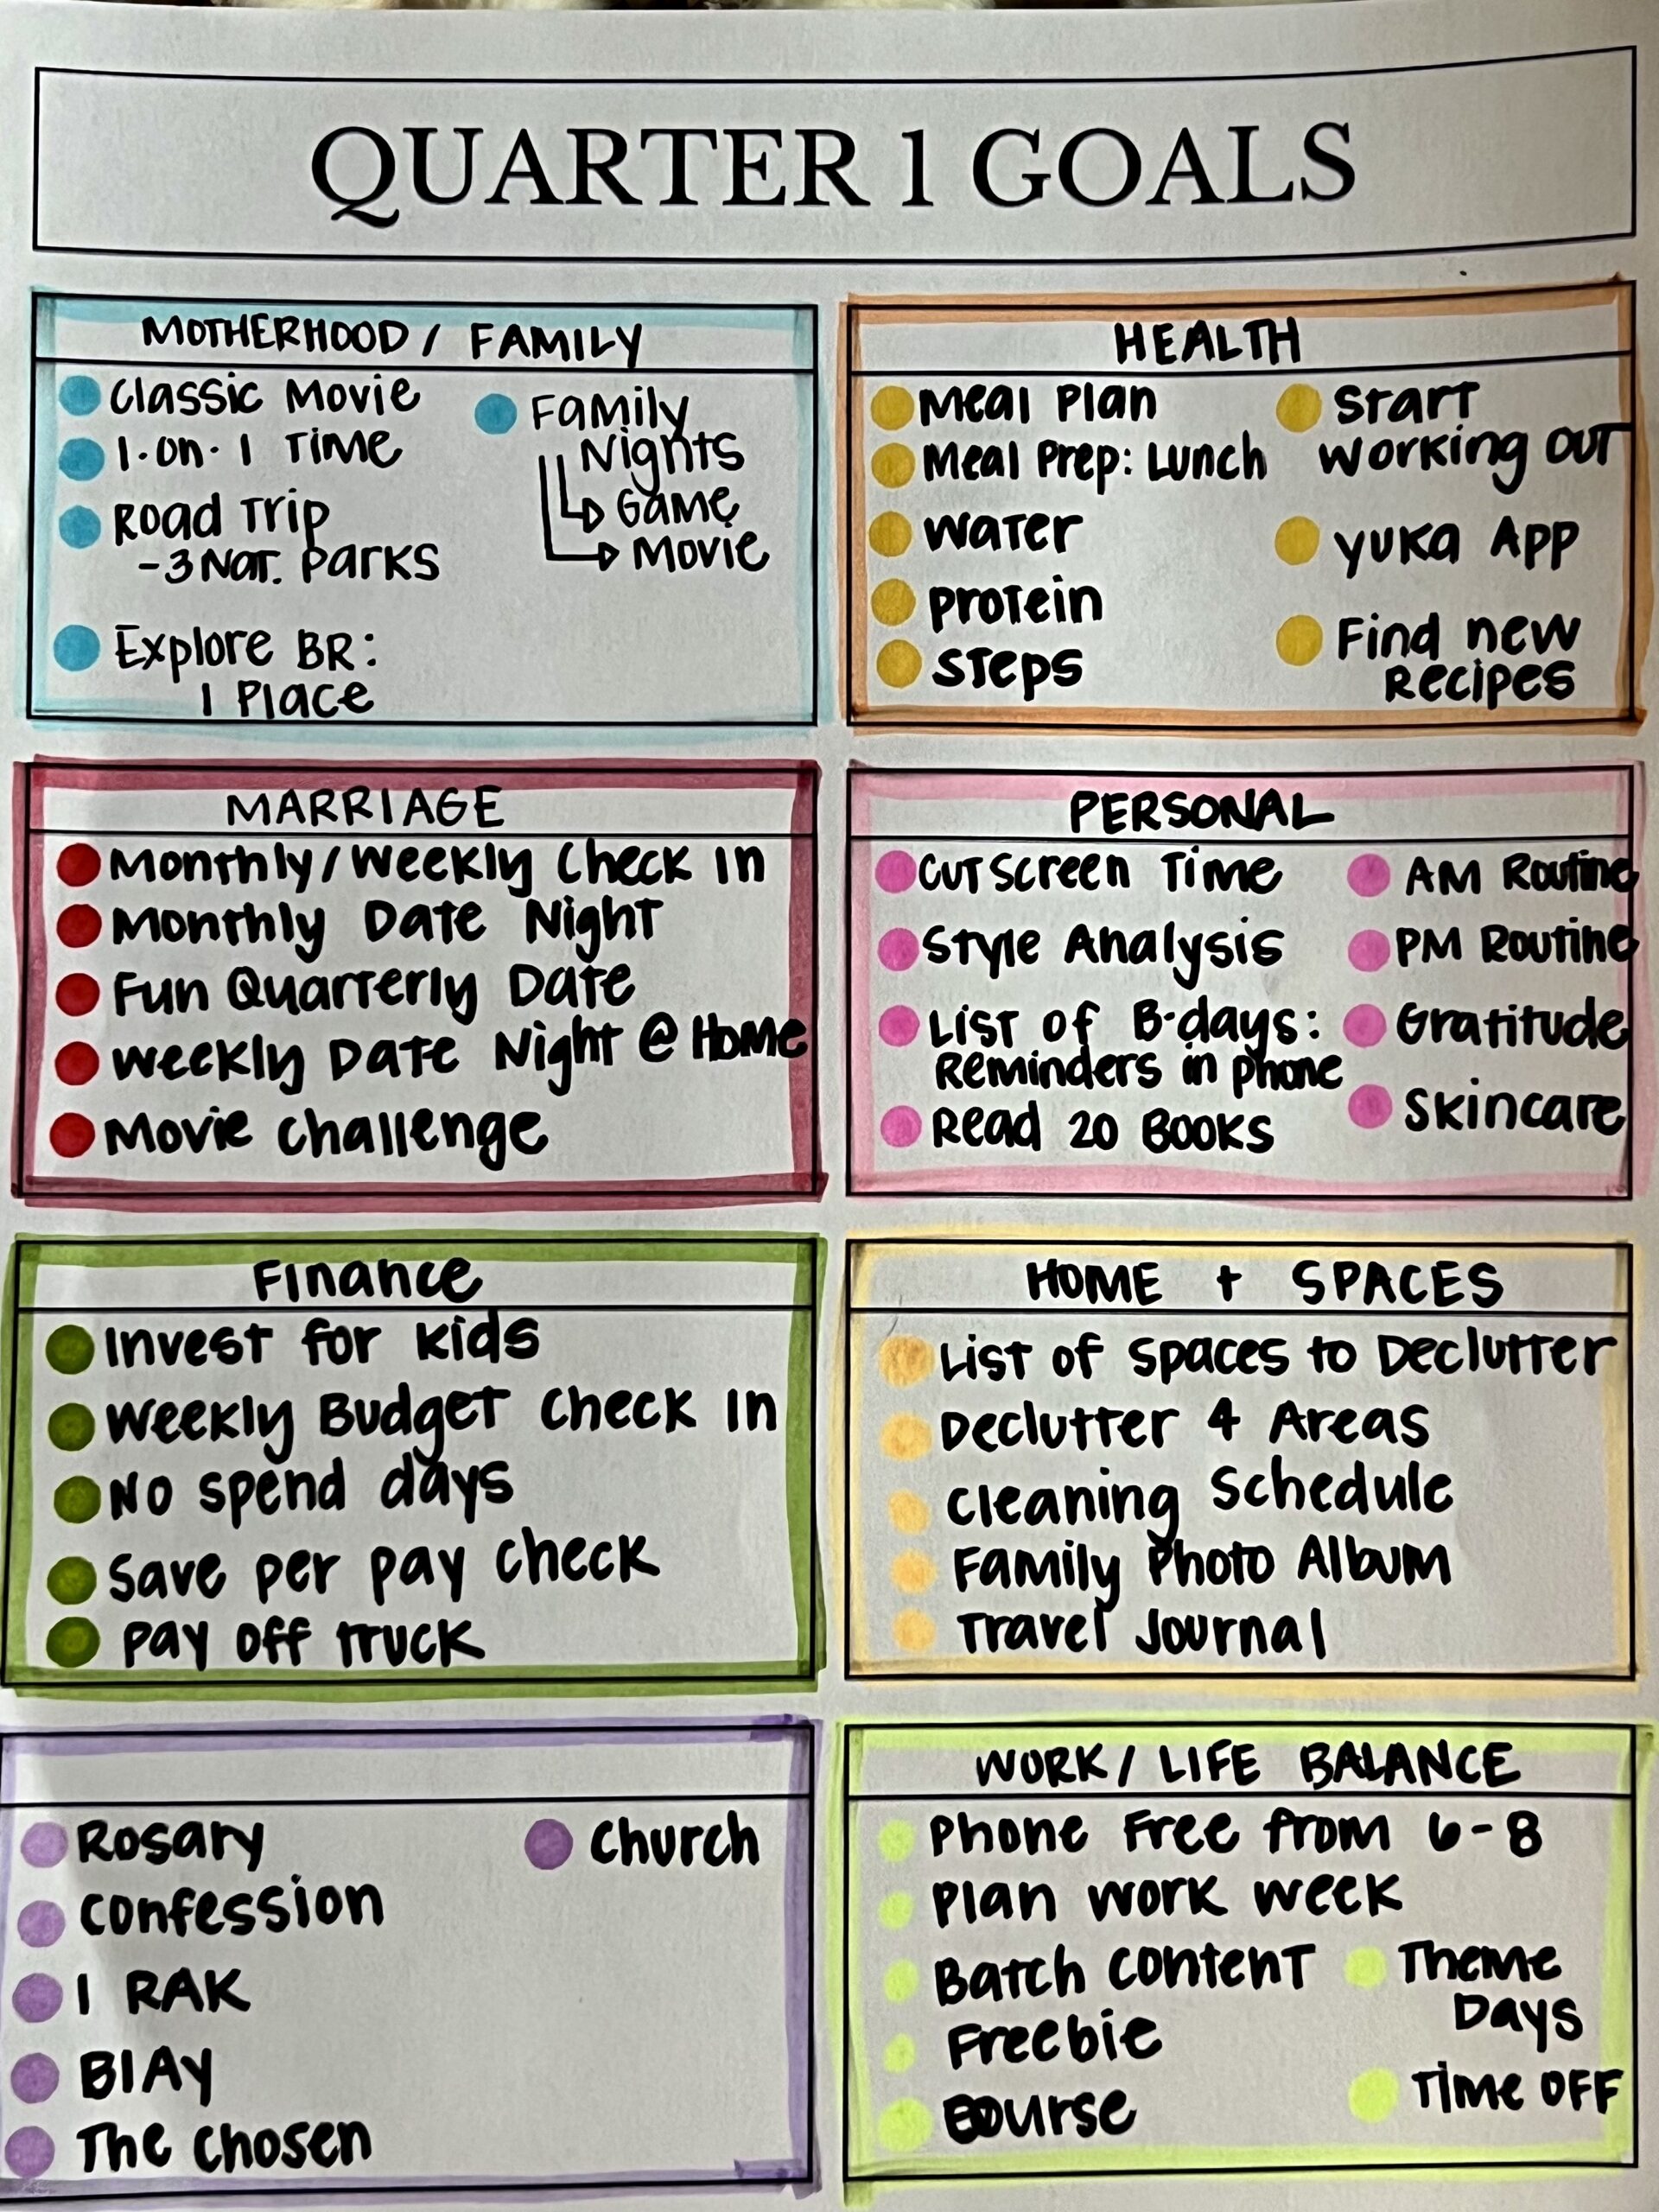 QUARTER 1 GOALS
MOTHERHOOD / FAMILY
Classic Movie
1·on·1 Time
Road Trip
-3 Nat. Parks
Explore BR:
1 Place
Family
Nights
Game
Movie
HEALTH
Meal Plan
Meal Prep: Lunch
Water
Protein
Steps
Start
Working out
Yuka App
Find new
Recipes
MARRIAGE
Monthly/Weekly Check In
Monthly Date Night
Fun Quarterly Date
Weekly Date Night @ Home
Movie Challenge
PERSONAL
Cut Screen Time
Style Analysis
List of B-days:
Reminders in phone
Read 20 Books
AM Routine
PM Routine
Gratitude
Skincare
Finance
Invest for kids
Weekly Budget Check In
No spend days
Save per pay check
Pay off truck
HOME + SPACES
List of Spaces to Declutter
Declutter 4 Areas
Cleaning Schedule
Family Photo Album
Travel Journal
Rosary
Confession
1 RAK
BIAY
The Chosen
Church
WORK / LIFE BALANCE
Phone Free from 6-8
Plan work week
Batch Content
Freebie
Course
Theme
Days
Time OFF